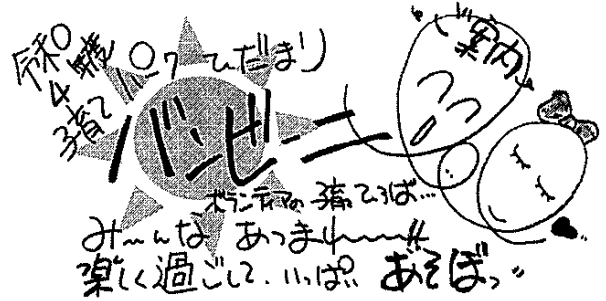 令和4年度
子育てパークひだまり
バンビーニ
ご案内
ボランティアの子育てひろば…
み〜んな あつまれ〜〜!!
楽しく過ごして、いっぱい あそぼっ